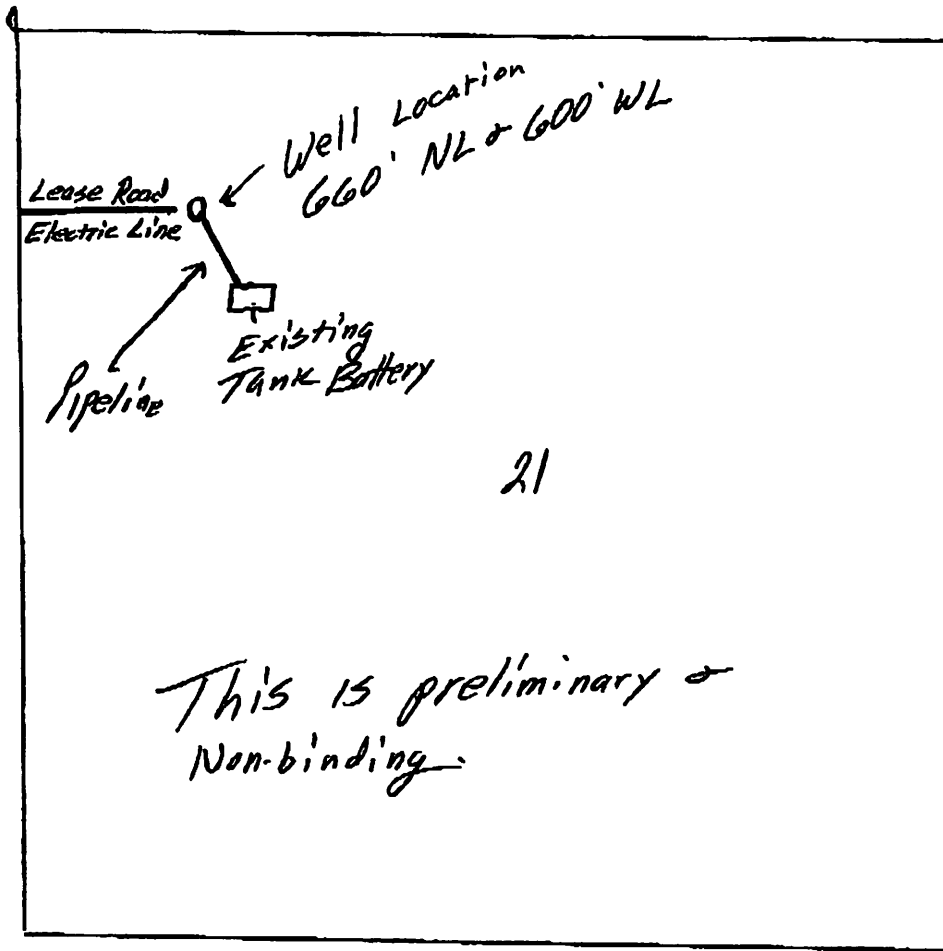 Well Location
660' NL & 600' WL
Lease Road
Electric Line
Existing
Tank Battery
Pipeline
21
This is preliminary &
Non-binding.